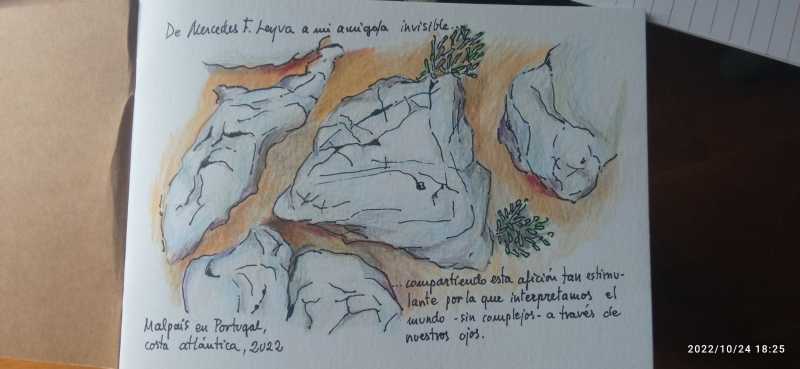 De Mercedes F. Leyva a mi amigo/a invisible...
...compartiendo esta afición tan estimu-
lante por la que interpretamos el
mundo -sin complejos- a través de
nuestros ojos.
Malpaís en Portugal,
costa atlántica, 2022
2022/10/24 18:25